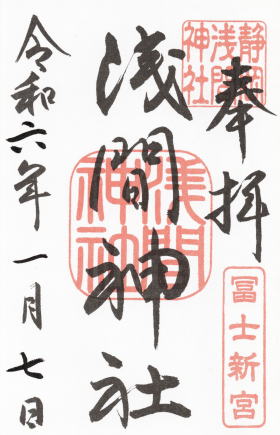 奉拝
静岡
浅間
神社
冨士新宮
浅間神社
浅間
神社
令和六年一月七日